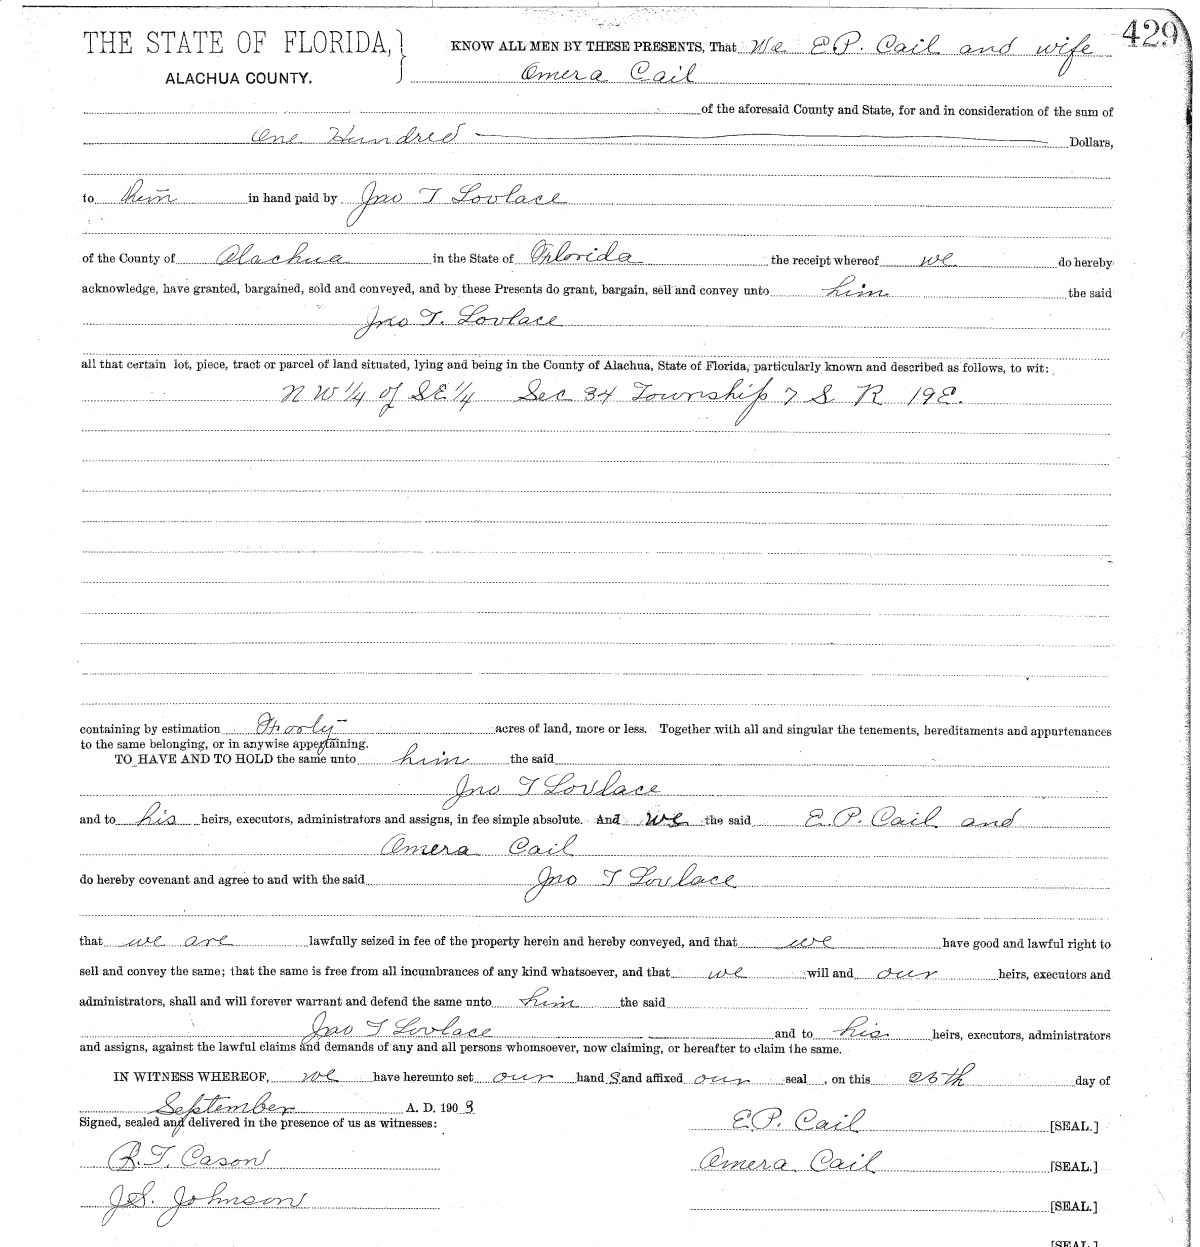 429
THE STATE OF FLORIDA,
ALACHUA COUNTY.
KNOW ALL MEN BY THESE PRESENTS, That We E.P. Cail and wife
Omera Cail
of the aforesaid County and State, for and in consideration of the sum of
One Hundred Dollars,
to them in hand paid by Jno T Lovlace
of the County of Alachua in the State of Florida the receipt whereof we do hereby
acknowledge, have granted, bargained, sold and conveyed, and by these Presents do grant, bargain, sell and convey unto him the said
Jno T. Lovlace
all that certain lot, piece, tract or parcel of land situated, lying and being in the County of Alachua, State of Florida, particularly known and described as follows, to wit:
NW 1/4 of SE 1/4 Sec 34 Township 7 S R 19E.
containing by estimation acres of land, more or less. Together with all and singular the tenements, hereditaments and appurtenances
to the same belonging, or in anywise appertaining.
TO HAVE AND TO HOLD the same unto him the said
Jno T Lovlace
and to his heirs, executors, administrators and assigns, in fee simple absolute. And we the said E.P. Cail and
Omera Cail
do hereby covenant and agree to and with the said Jno T Lovlace
that we are lawfully seized in fee of the property herein and hereby conveyed, and that we have good and lawful right to
sell and convey the same; that the same is free from all incumbrances of any kind whatsoever, and that we will and our heirs, executors and
administrators, shall and will forever warrant and defend the same unto him the said
Jno T Lovlace and to his heirs, executors, administrators
and assigns, against the lawful claims and demands of any and all persons whomsoever, now claiming, or hereafter to claim the same.
IN WITNESS WHEREOF, we have hereunto set our hand S and affixed our seal , on this day of
September A. D. 1903
Signed, sealed and delivered in the presence of us as witnesses:
E.P. Cail [SEAL.]
R.T. Cason Omera Cail [SEAL.]
J.S. Johnson [SEAL.]
[SEAL.]